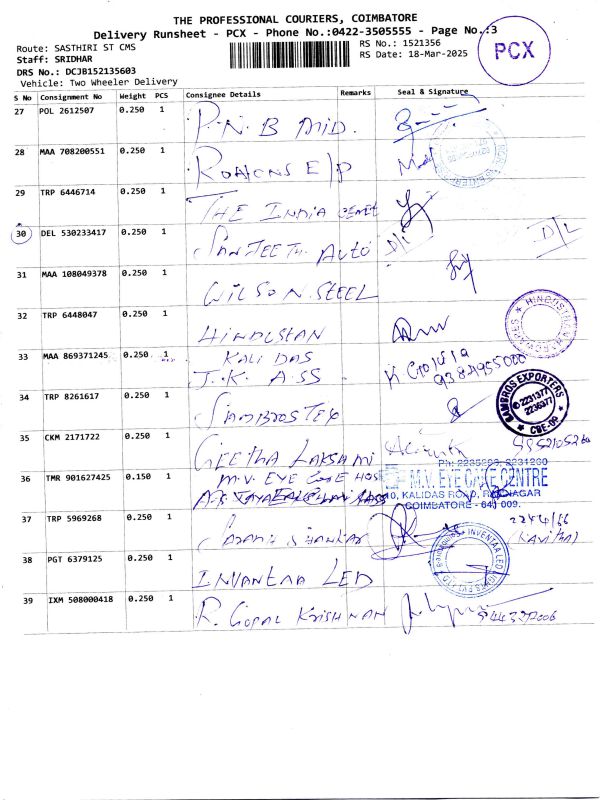 THE PROFESSIONAL COURIERS, COIMBATORE
Delivery Runsheet - PCX - Phone No.:0422-3505555 - Page No.:3
Route: SASTHIRI ST CMS
RS No.: 1521356
PCX
Staff: SRIDHAR
RS Date: 18-Mar-2025
DRS No.: DCJB152135603
Vehicle: Two Wheeler Delivery
S No Consignment No Weight PCS Consignee Details Remarks Seal & Signature
27 POL 2612507 0.250 1 P.N.B MID.
28 MAA 708200551 0.250 1 E/P
29 TRP 6446714 0.250 1 THE INDIA CEMET
30 DEL 530233417 0.250 1 SANJEETH AUTO D/L D/L
31 MAA 108049378 0.250 1 WILSON. STEEL
32 TRP 6448047 0.250 1 HINDUSTAN
33 MAA 869371245 0.250 1 KALI DAS
J.K. ASS
K Gokila
9384955000
34 TRP 8261617 0.250 1 SAMBROS TEX
SAMBROS EXPORTERS
2231377
2236377
CBE-09
35 CKM 2171722 0.250 1 GEETHA LAKSHMI
36 TMR 901627425 0.150 1 M.V. EYE CARE HOS
Ph: 2235293, 2231230
M.V. EYE CARE CENTRE
10, KALIDAS ROAD, RAMNAGAR
COIMBATORE - 641 009.
37 TRP 5969268 0.250 1 SARAVA SHANKAR
2244166
(KAVITHA)
38 PGT 6379125 0.250 1 INVANTAA LED
INVENTAA LED
39 IXM 508000418 0.250 1 R. GOPAL KRISHNAN